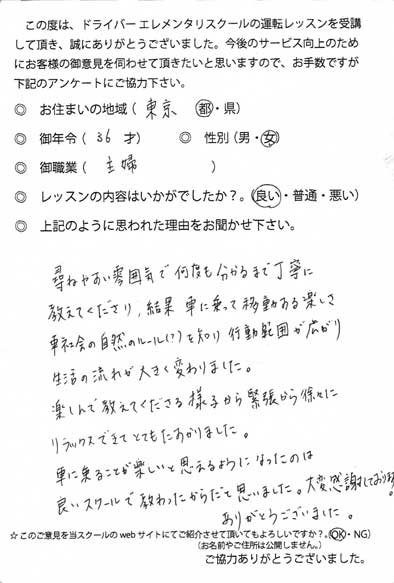 この度は、ドライバー エレメンタリスクールの運転レッスンを受講
して頂き、誠にありがとうございました。今後のサービス向上のため
にお客様の御意見を伺わせて頂きたいと思いますので、お手数ですが
下記のアンケートにご協力下さい。
◎ お住まいの地域（ 東京 都・県）
◎ 御年令（ 36 才） ◎ 性別（男・女）
◎ 御職業（ 主婦 ）
◎ レッスンの内容はいかがでしたか？。（良い・普通・悪い）
◎ 上記のように思われた理由をお聞かせ下さい。
尋ねやすい雰囲気で何度も分かるまで丁寧に
教えてくださり、結果 車に乗って移動する楽しさ
車社会の自然のルール(?)を知り 行動範囲が広がり
生活の流れが大きく変わりました。
楽しんで教えてくださる様子から緊張から徐々に
リラックスできて とてもたすかりました。
車に乗ることが楽しいと思えるようになったのは
良いスクールで教わったからだと思いました。大変感謝しております。
ありがとうございました。
☆このご意見を当スクールの web サイトにてご紹介させて頂いてもよろしいですか？。（OK・NG）
（お名前やご住所は公開しません。）
ご協力ありがとうございました。